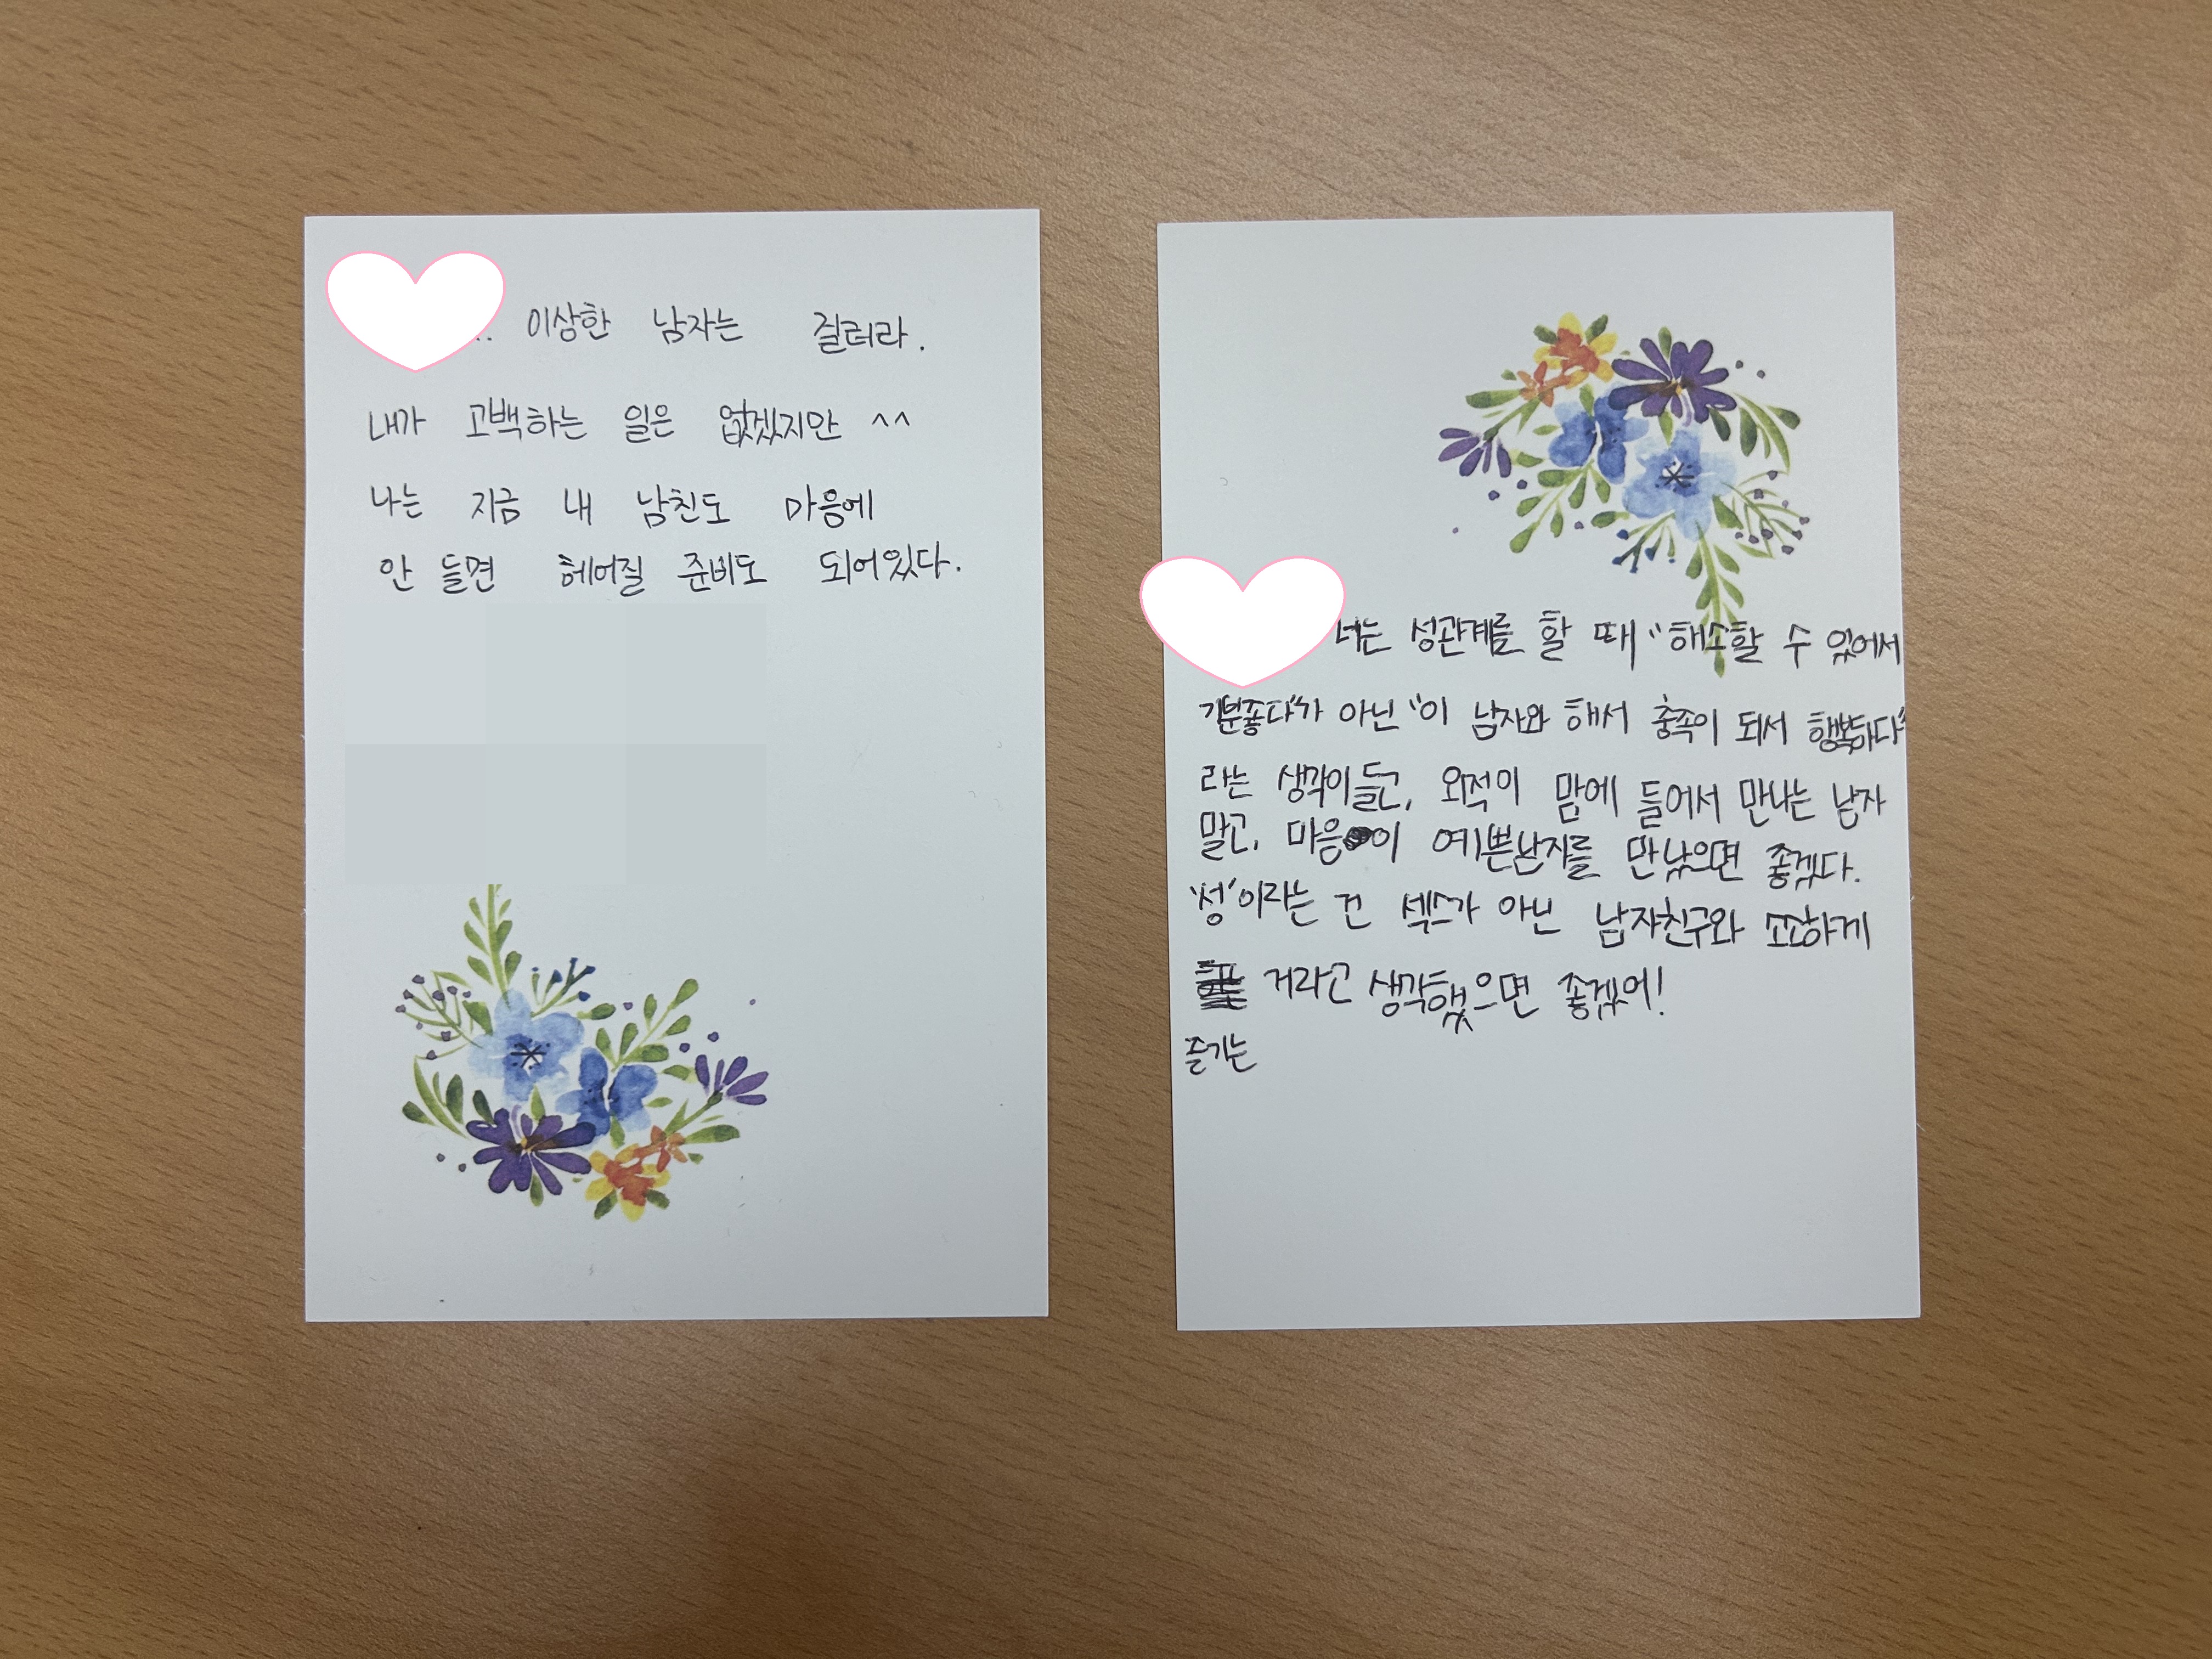 .. 이상한 남자는 걸러라.
내가 고백하는 일은 없겠지만 ^^
나는 지금 내 남친도 마음에
안 들면 헤어질 준비도 되어있다.
너는 성관계를 할 때 "해소할 수 있어서
기분좋다"가 아닌 "이 남자와 해서 충족이 되서 행복하다"
라는 생각이들고, 외적이 맘에 들어서 만나는 남자
말고, 마음이 예쁜남자를 만났으면 좋겠다.
'성'이라는 건 섹스가 아닌 남자친구와 소소하게
거라고 생각했으면 좋겠어!
즐기는